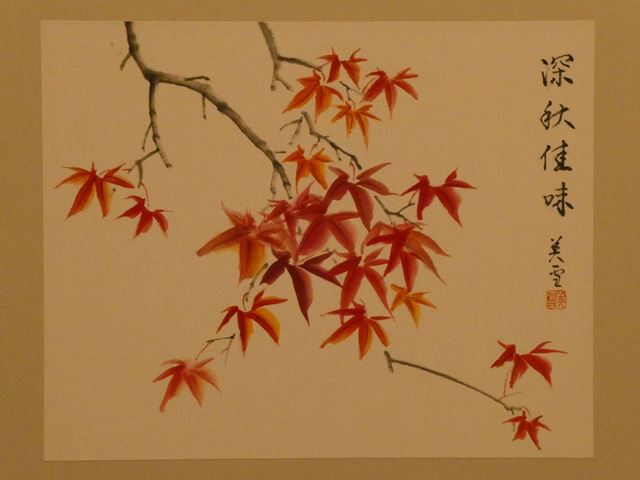 深秋佳味
美雪